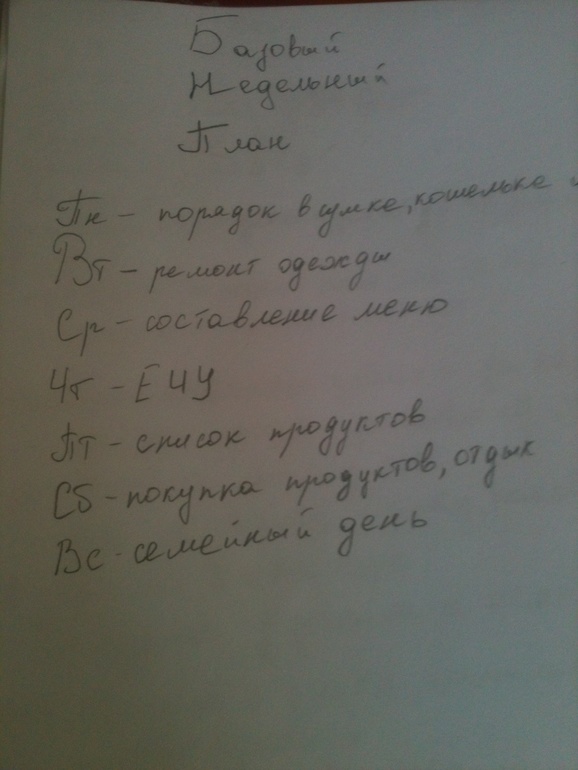 Базовый
Недельный
План
Пн - порядок в сумке, кошельке
Вт - ремонт одежды
Ср - составление меню
Чт - ЕЧУ
Пт - список продуктов
Сб - покупка продуктов, отдых
Вс - семейный день